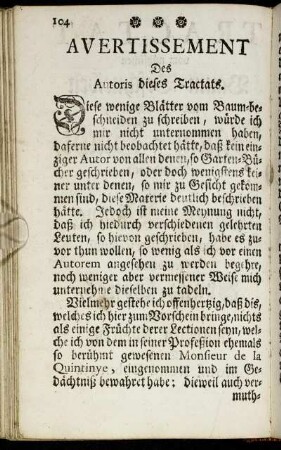 104
AVERTISSEMENT
Des
Autoris dieses Tractats.
Diese wenige Blätter vom Baum-be-
schneiden zu schreiben, würde ich
mir nicht unternommen haben,
daferne nicht beobachtet hätte, daß kein ein-
ziger Autor von allen denen, so Garten-Bü-
cher geschrieben, oder doch wenigstens kei-
ner unter denen, so mir zu Gesicht gekom-
men sind, diese Materie deutlich beschrieben
hätte. Jedoch ist meine Meynung nicht,
daß ich hiedurch verschiedenen gelehrten
Leuten, so hievon geschrieben, habe es zu-
vor thun wollen, so wenig als ich vor einen
Autorem angesehen zu werden begehre,
noch weniger aber vermessener Weise mich
unternehme dieselben zu tadeln.
Vielmehr gestehe ich offenhertzig, daß dis,
welches ich hier zum Vorschein bringe, nichts
als einige Früchte derer Lectionen seyn, wel-
che ich von dem in seiner Profession ehemals
so berühmt gewesenen Monsieur de la
Quintinye, eingenommen und im Ge-
dächtniß bewahret habe: dieweil auch ver-
muth-